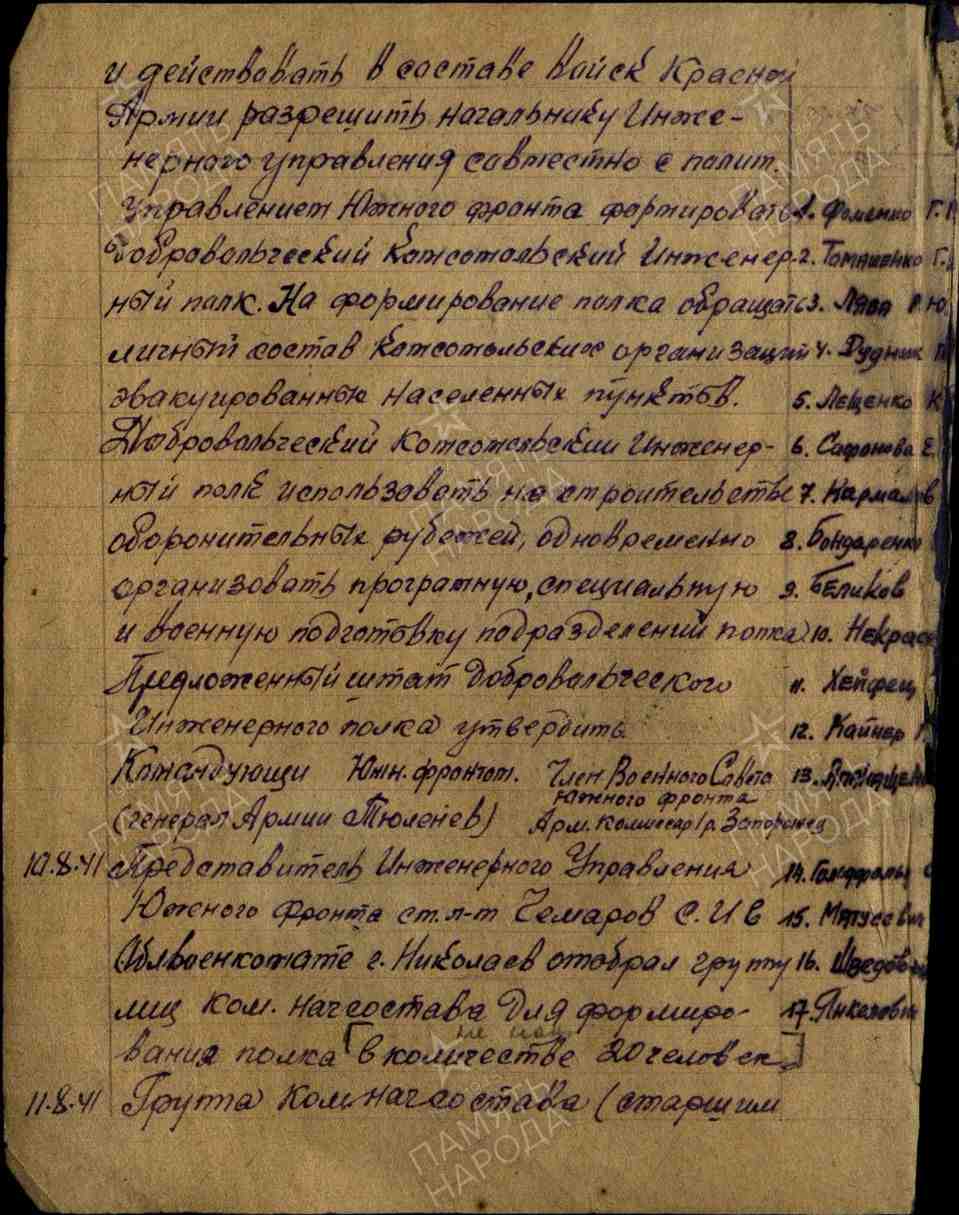 и действовать в составе войск Красной
Армии разрешить начальнику Инже-
нерного управления совместно с полит.
управлением Южного фронта формировать
Добровольческий Комсомольский Инженер-
ный полк. На формирование полка обращать
личный состав Комсомольских организаций
эвакуированных населенных пунктов.
Добровольческий Комсомольский Инженер-
ный полк использовать на строительстве
оборонительных рубежей, одновременно
организовать програмную, специальную
и военную подготовку подразделений полка
Предложенный штат Добровольческого
Инженерного полка утвердить
Командующи Южн. фронтом. Член Военного Совета
Южного фронта
(генерал Армии Тюленев) Арм. комиссар 1 р. Запорожец
10.8.41 Представитель Инженерного Управления
Южного Фронта ст. л-т Чемаров С. И в
Облвоенкомате г. Николаев отобрал группу
лиц ком. начсостава для формиро-
вания полка [в количестве 20 человек]
11.8.41 Группа Комначсостава (старшим
1. Фоменко Г.
2. Томашенко Г.
3. Ляпа
4. Дудник
5. Лещенко К
6. Сафонова Е.
7. Кармалов
8. Бондаренко
9. Беликов
10. Некрасо
11. Хейфец
12. Кайнер
13.
14.
15. Матусевич
16. Шведов
17. Янкелович
ПАМЯТЬ
НАРОДА